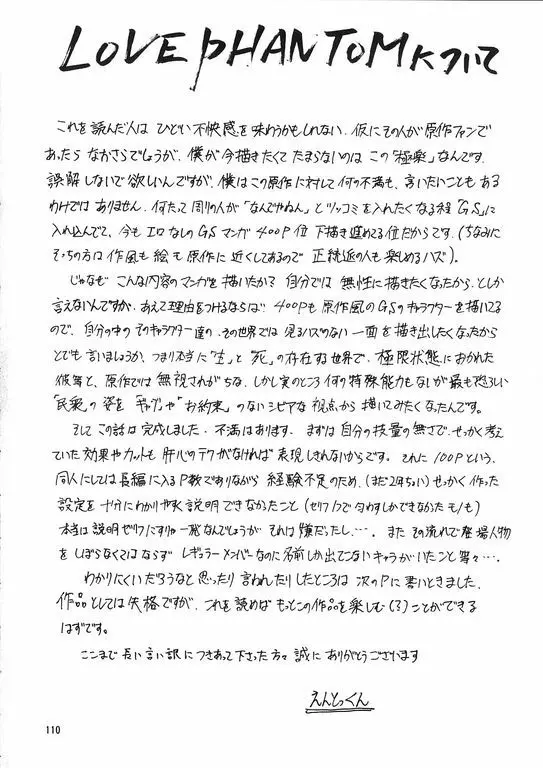 LOVE PHANTOMについて
これを読んだ人は ひどい不快感を味わうかもしれない。仮にその人が原作ファンで
あったら なおさらでしょうが、僕が今描きたくて たまらないのは この「極楽」なんです。
誤解しないで欲しいんですが、僕はこの原作に対して何の不満も、言いたいことも ある
わけでは ありません。何たって周りの人が「なんでやねん」とツッコミを入れたくなる程「GS」に
入れ込んでて、今も エロなしの GSマンガ 400P位 下描き進めてる位だからです。(ちなみに
そっちの方は作風も 絵も 原作に 近くしてあるので 正統派の人も楽しめるハズ)。
じゃなぜ こんな内容のマンガを描いたか? 自分では 無性に描きたくなったから、としか
言えないんですが、あえて理由をつけるならば 400Pも 原作風のGSのキャラクターを描いてる
ので、自分の中の そのキャラクター達の、その世界では 見るハズのない 一面を描き出したくなったから
とでも言いましょうか、つまり本当に「生」と「死」の存在する世界で、極限状態におかれた
彼等と、原作では無視されがちな、しかし実のところ 何の特殊能力もないが最も恐ろしい
「民衆」の 姿を 「ギャグ」や「お約束」のないシビアな 視点から 描いてみたくなったんです。
そして この話は 完成しました、不満はあります、まずは自分の技量の無さで、せっかく考え
ていた効果やカットも 肝心のテクがなければ 表現しきれないからです。それに 100Pという、
同人にしては長編に入るP数でありながら 経験不足のため、(まだ2年ちょい) せっかく作った
設定を十分にわかりやすく説明できなかったこと (セリフ1つで匂わすしかできなかったモノも)
本当は説明ゼリフにすりゃ一発なんでしょうが それは嫌だったし…。また その流れで登場人物
を しぼらなくてはならず レギュラーメンバーなのに名前しか出てこないキャラがいたこと等々…。
わかりにくいだろうなと思ったり 言われたりしたところは 次のPに書いときました、
作品としては失格ですが、これを読めばもっとこの作品を楽しむ(?)ことができる
はずです。
ここまで長い言い訳につきあって下さった方々 誠に ありがとうございます
えんとっくん
110